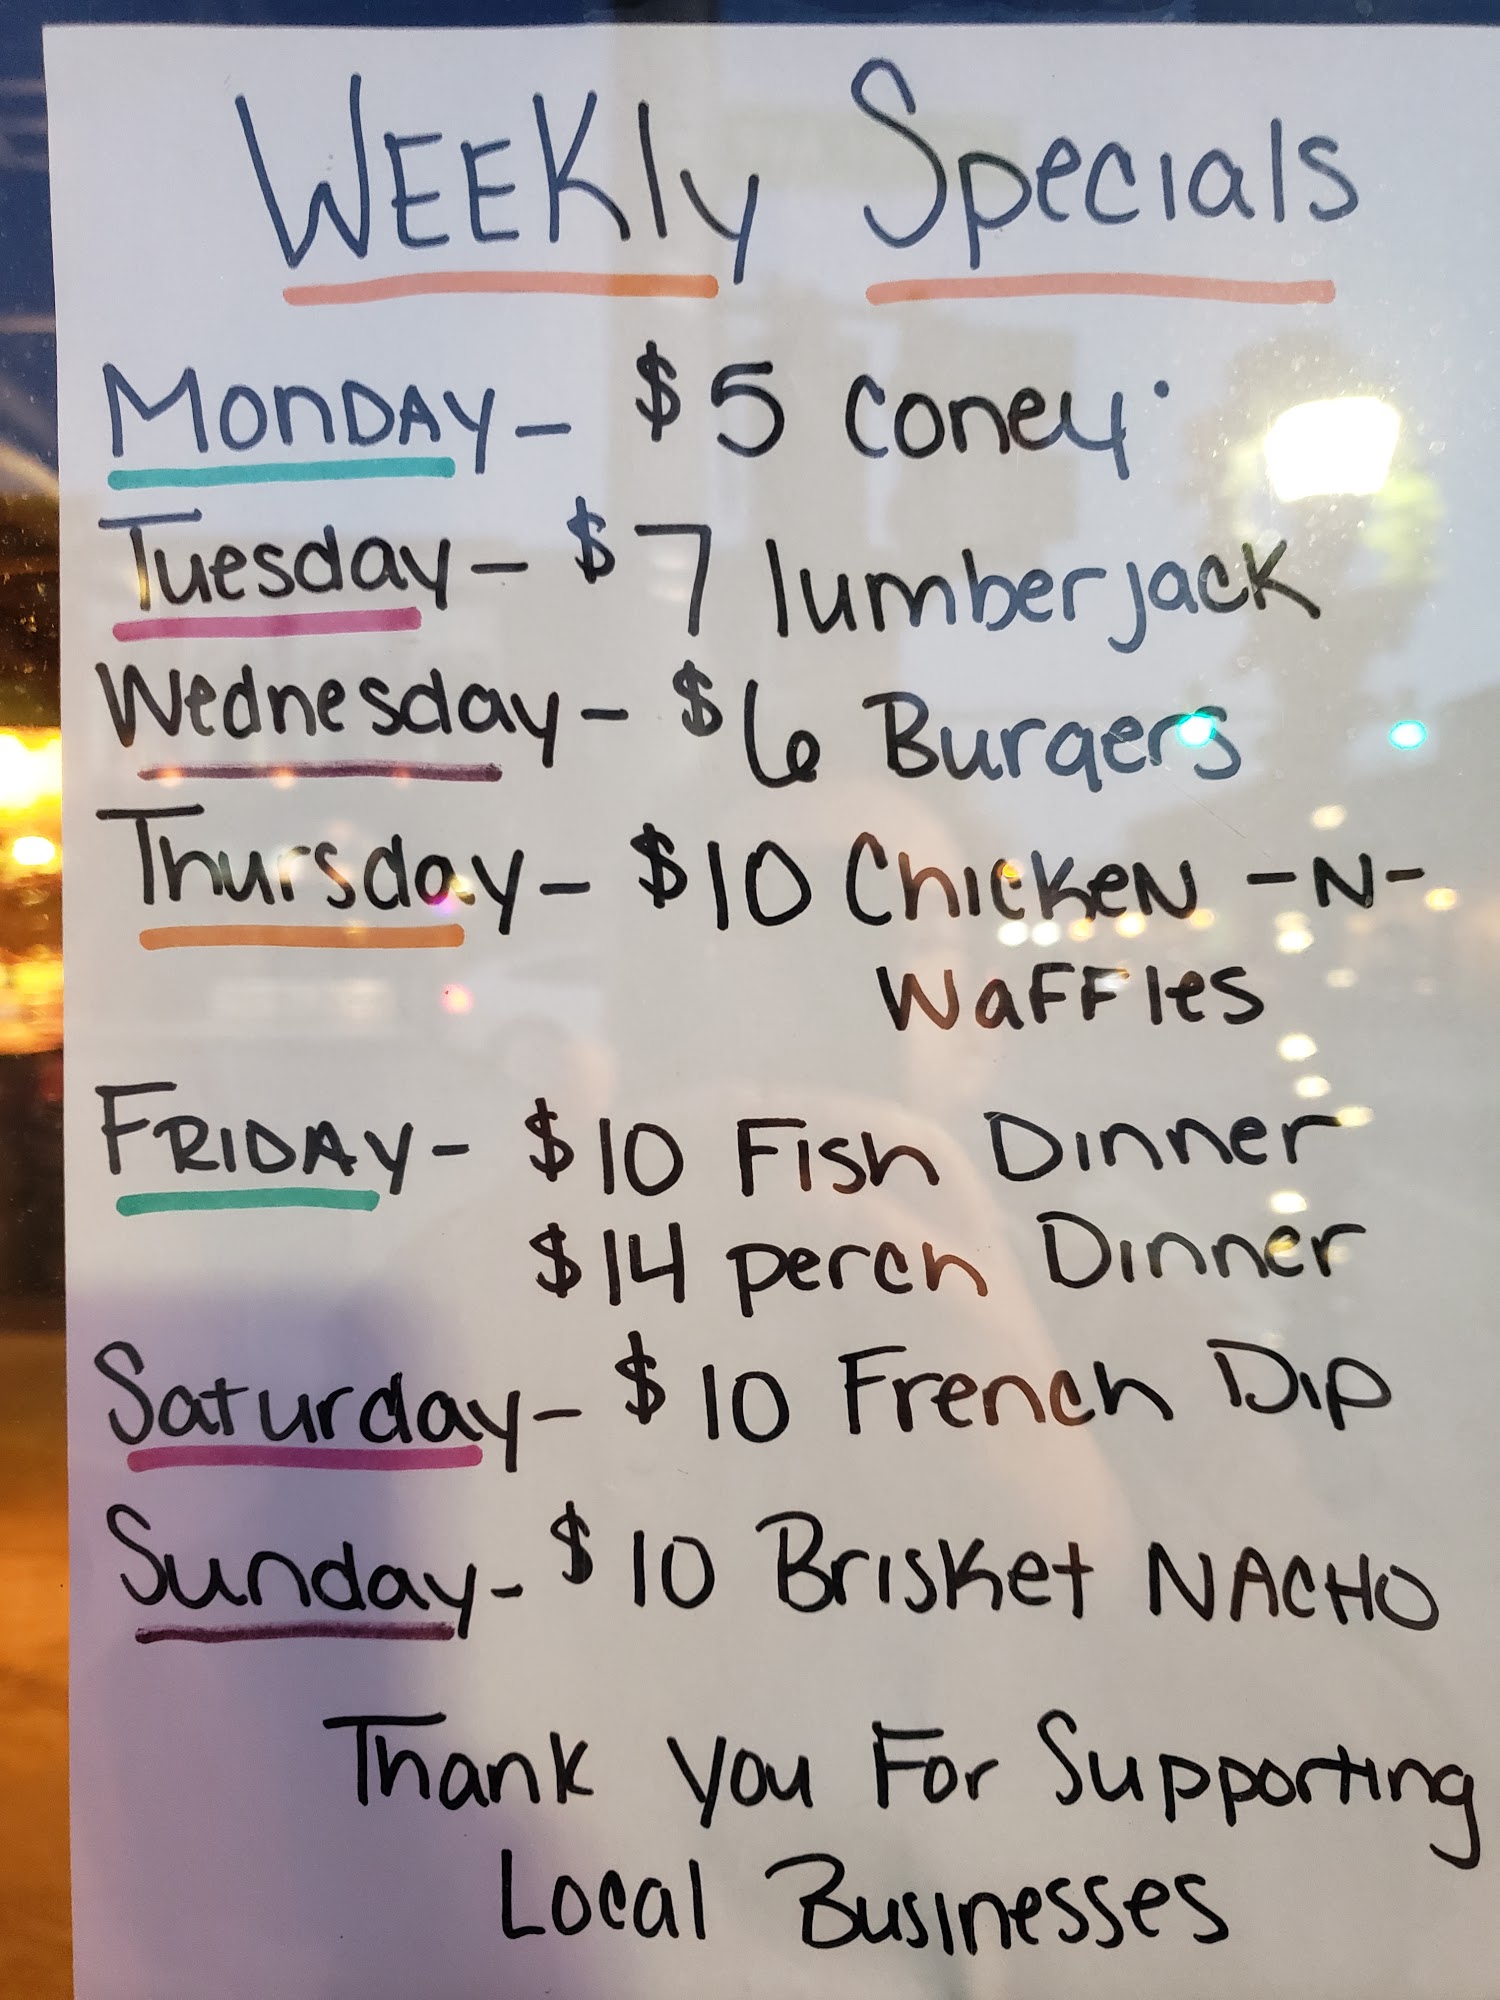 WEEKly Specials
MONDAY - $5 Coney
Tuesday - $7 lumberjack
Wednesday - $6 Burgers
Thursday - $10 Chicken -N-
Waffles
FRIDAY - $10 Fish Dinner
$14 perch Dinner
Saturday - $10 French Dip
Sunday - $10 Brisket NACHO
Thank you For Supporting
Local Businesses